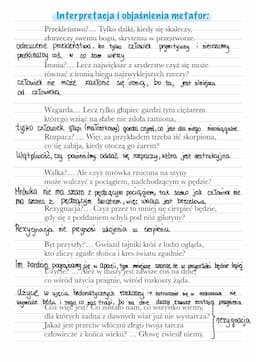 Interpretacja i objaśnienia metafor:
Przekleństwo?... Tylko dziki, kiedy się skaleczy,
złorzeczy swemu bogu, skrytemu w przestworze.
odrzucenie przekleństwa, bo tylko człowiek prymitywny i nierozumny
przeklinałby coś, w co sam wierzy
Ironia?... Lecz największe z szyderstw czyż się może
równać z ironią biegu najzwyklejszych rzeczy?
człowiek nie może zasłonić się ironią, bo ta, jest silniejsza
od człowieka.
Wzgarda... Lecz tylko głupiec gardzi tym ciężarem
którego wziąć na słabe nie zdoła ramiona,
tylko człowiek głupi gardzi czymś, co jest dla niego
Rozpacz?... Więc za przykładem trzeba iść skorpiona,
co się zabija, kiedy otoczą go żarem?
Wątpliwość, czy powinniśmy oddać się rozpaczy, która jest destrukcyjna
Walka?... Ale czyż mrówka rzucona na szyny
może walczyć z pociągiem, nadchodzącym w pędzie?
Mrówka nie ma szans z pędzącym pociągiem, tak samo jak człowiek nie
ma szans z światem, więc walka jest bezcelowa.
Rezygnacja?... Czyż przez to mniej się cierpieć będzie,
gdy się z poddaniem schyli pod nóż gilotyny?
Rezygnacja nie przynosi ukojenia w cierpieniu
Byt przyszły?... Gwiazd tajniki któż z ludzi ogląda,
kto zliczy zgasłe słońca i kres światu zgadnie?
Im bardziej
Użycie?... Ależ w duszy jest zawsze coś na dnie,
co wśród użycia pragnie, wśród rozkoszy żąda.
Użycie w życiu,
Cóż więc jest? Co zostało nam, co wszystko wiemy,
dla których żadna z dawnych wiar już nie wystarcza?
Jakaż jest przeciw włóczni złego twoja tarcza
człowiecze z końca wieku?... Głowę zwiesił niemy.
rezygnacja